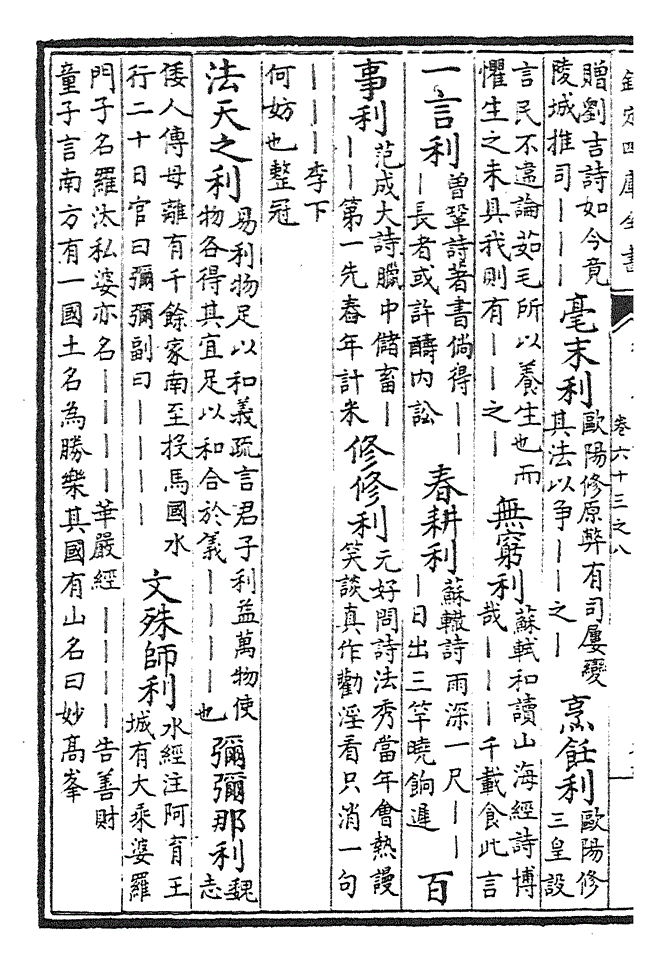 欽定四庫全書
卷六十三之八
贈劉吉詩如今竟
陵城推司丨丨丨
毫末利
歐陽修原弊有司屢變
其法以爭丨丨之丨
烹飪利
歐陽修
三皇設
言民不遑論茹毛所以養生也而
懼生之未具我則有丨丨之丨
無窮利
蘇軾和讀山海經詩博
哉丨丨丨千載食此言
一言利
曾鞏詩著書倘得丨丨
丨長者或許醻内訟
春耕利
蘇轍詩雨深一尺丨丨
丨日出三竿曉餉遲
百
事利
范成大詩臘中儲畜丨
丨丨第一先舂年計米
修修利
元好問詩法秀當年㑹熱謾
笑談真作勸淫看只消一句
丨丨丨李下
何妨也整冠
法天之利
易利物足以和義疏言君子利益萬物使
物各得其宜足以和合於義丨丨丨丨也
彌彌那利
魏
志
倭人傳毋離有千餘家南至投馬國水
行二十日官曰彌彌副曰丨丨丨丨
文殊師利
水經注阿育王
城有大乘婆羅
門子名羅汰私婆亦名丨丨丨丨華嚴經丨丨丨丨告善財
童子言南方有一國土名為勝樂其國有山名曰妙髙峯